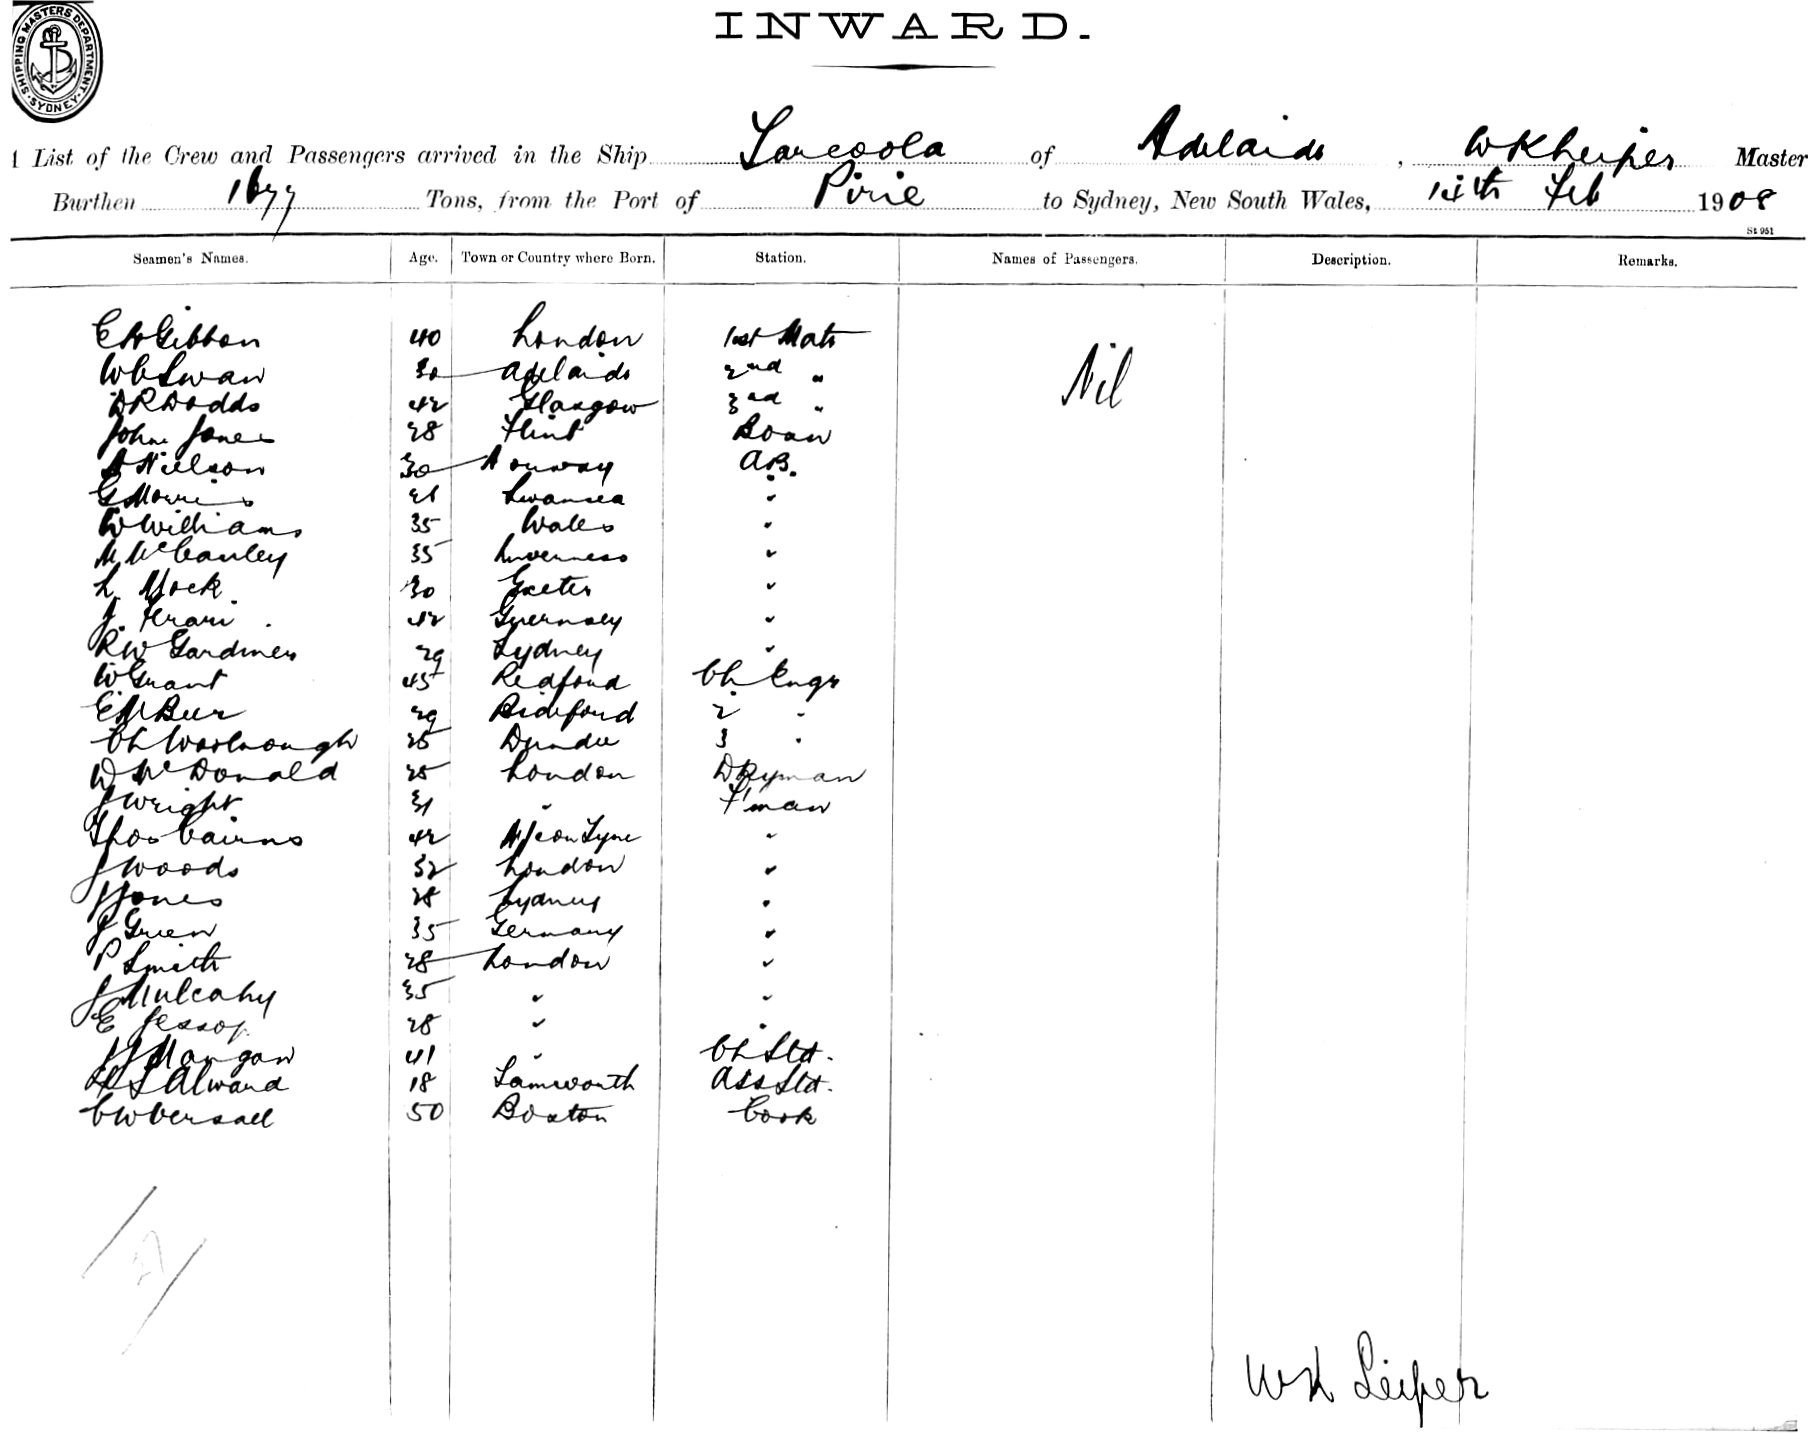 SHIPPING MASTERS DEPARTMENT. SYDNEY
INWARD.
List of the Crew and Passengers arrived in the Ship Tarcoola of Adelaide, WK Leiper Master
Burthen 1677 Tons, from the Port of Pirie to Sydney, New South Wales, Feb 1908
St 951
Seamen's Names. Age. Town or Country where Born. Station. Names of Passengers. Description. Remarks.
Gibbon 40 London 1st Mate Nil
Swan 30 Adelaide 2nd "
DR Dodds 42 Glasgow 3rd "
John Jones 28 Flint Bosun
Nielson 30 Norway A.B.
G Morris 21 Swansea "
W Williams 35 Wales "
M McCauley 35 Inverness "
L Mock 30 Exeter "
J. 42 Guernsey "
RW Gardiner 29 Sydney "
W Grant 45 Redford Ch Engr
29 Bideford 2 "
Ch Woolnough 25 Dundee 3 "
W McDonald 25 London DKyman
J Wright 31 " F'man
Thos Cairns 42 N/C on Tyne "
J Woods 32 London "
J Jones 28 Sydney "
J Green 35 Germany "
P Smith 28 London "
J Mulcahy 35 " "
E Jessop 28 " "
J J Mangan 41 " Ch Std.
Alward 18 Tamworth Ass Std.
CW Versall 50 Boston Cook
WK Leiper